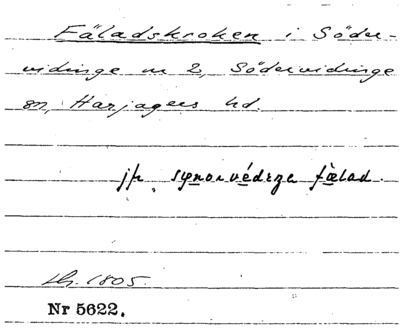 Fäladskroken i Söder-
vidinge nr 2, Södervidinge
sn, Harjagers hd.
jfr synorvédεŋa fælad.
Lhr. 1805.
Nr 5622.